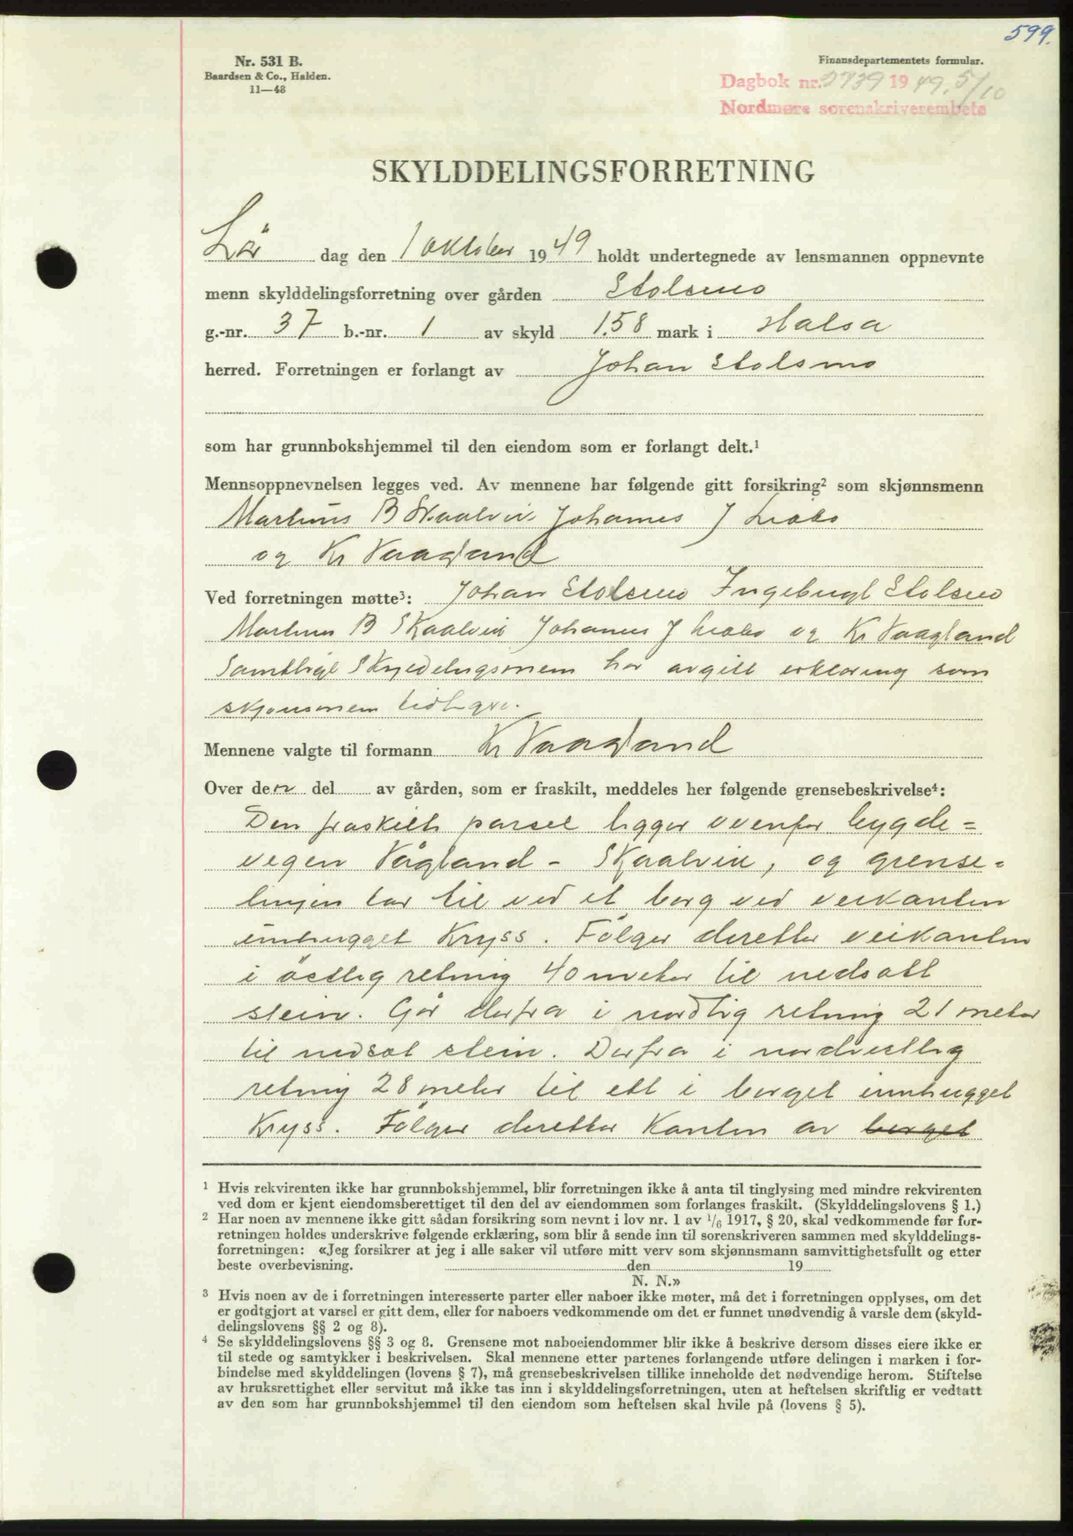 599.
Nr. 531 B.
Baardsen & Co., Halden.
11—48
Finansdepartementets formular.
Dagbok nr. 2739 1949. 5/10
Nordmøre sorenskriverembete
SKYLDDELINGSFORRETNING
Lør dag den 1 oktober 1949 holdt undertegnede av lensmannen oppnevnte
menn skylddelingsforretning over gården Stolsmo
g.-nr. 37 b.-nr. 1 av skyld 1.58 mark i Halsa
herred. Forretningen er forlangt av Johan Stolsmo
som har grunnbokshjemmel til den eiendom som er forlangt delt.¹
Mennsoppnevnelsen legges ved. Av mennene har følgende gitt forsikring² som skjønnsmenn
Martinus B Skaalvik Johannes J
og Kr Vaagland
Ved forretningen møtte³: Johan Stolsmo Ingebrigt Stolsmo
Martinus B Skaalvik Johannes J og Kr Vaagland
Samtlige har avgitt erklæring som
skjønsmenn tidligere.
Mennene valgte til formann Kr Vaagland
Over den del av gården, som er fraskilt, meddeles her følgende grensebeskrivelse⁴:
Den fraskilte parsel ligger ovenfor bygde=
vegen Vågland - Skaalvik, og grense=
linjen tar til ved et berg ved veikanten
innhugget Kryss. Følger deretter veikanten
i östlig retning 40 meter til nedsatt
stein. Går derfra i nordlig retning 21 meter
til nedsat stein. Derfra i nordvestlig
retning 28 meter til ett i berget innhugget
Kryss. Følger deretter Kanten av berget
¹ Hvis rekvirenten ikke har grunnbokshjemmel, blir forretningen ikke å anta til tinglysing med mindre rekvirenten
ved dom er kjent eiendomsberettiget til den del av eiendommen som forlanges fraskilt. (Skylddelingslovens § 1.)
² Har noen av mennene ikke gitt sådan forsikring som nevnt i lov nr. 1 av 1/6 1917, § 20, skal vedkommende før for-
retningen holdes underskrive følgende erklæring, som blir å sende inn til sorenskriveren sammen med skylddelings-
forretningen: «Jeg forsikrer at jeg i alle saker vil utføre mitt verv som skjønnsmann samvittighetsfullt og etter
beste overbevisning. den 19
N. N.»
³ Hvis noen av de i forretningen interesserte parter eller naboer ikke møter, må det i forretningen opplyses, om det
er godtgjort at varsel er gitt dem, eller for naboers vedkommende om det er funnet unødvendig å varsle dem (skyld-
delingslovens §§ 2 og 8).
⁴ Se skylddelingslovens §§ 3 og 8. Grensene mot naboeiendommer blir ikke å beskrive dersom disses eiere ikke er
til stede og samtykker i beskrivelsen. Skal mennene etter partenes forlangende utføre delingen i marken i for-
bindelse med skylddelingen (lovens § 7), må grensebeskrivelsen tillike inneholde det nødvendige herom. Stiftelse
av bruksrettighet eller servitut må ikke tas inn i skylddelingsforretningen, uten at heftelsen skriftlig er vedtatt
av den som har grunnbokshjemmel til den eiendom som heftelsen skal hvile på (lovens § 5).